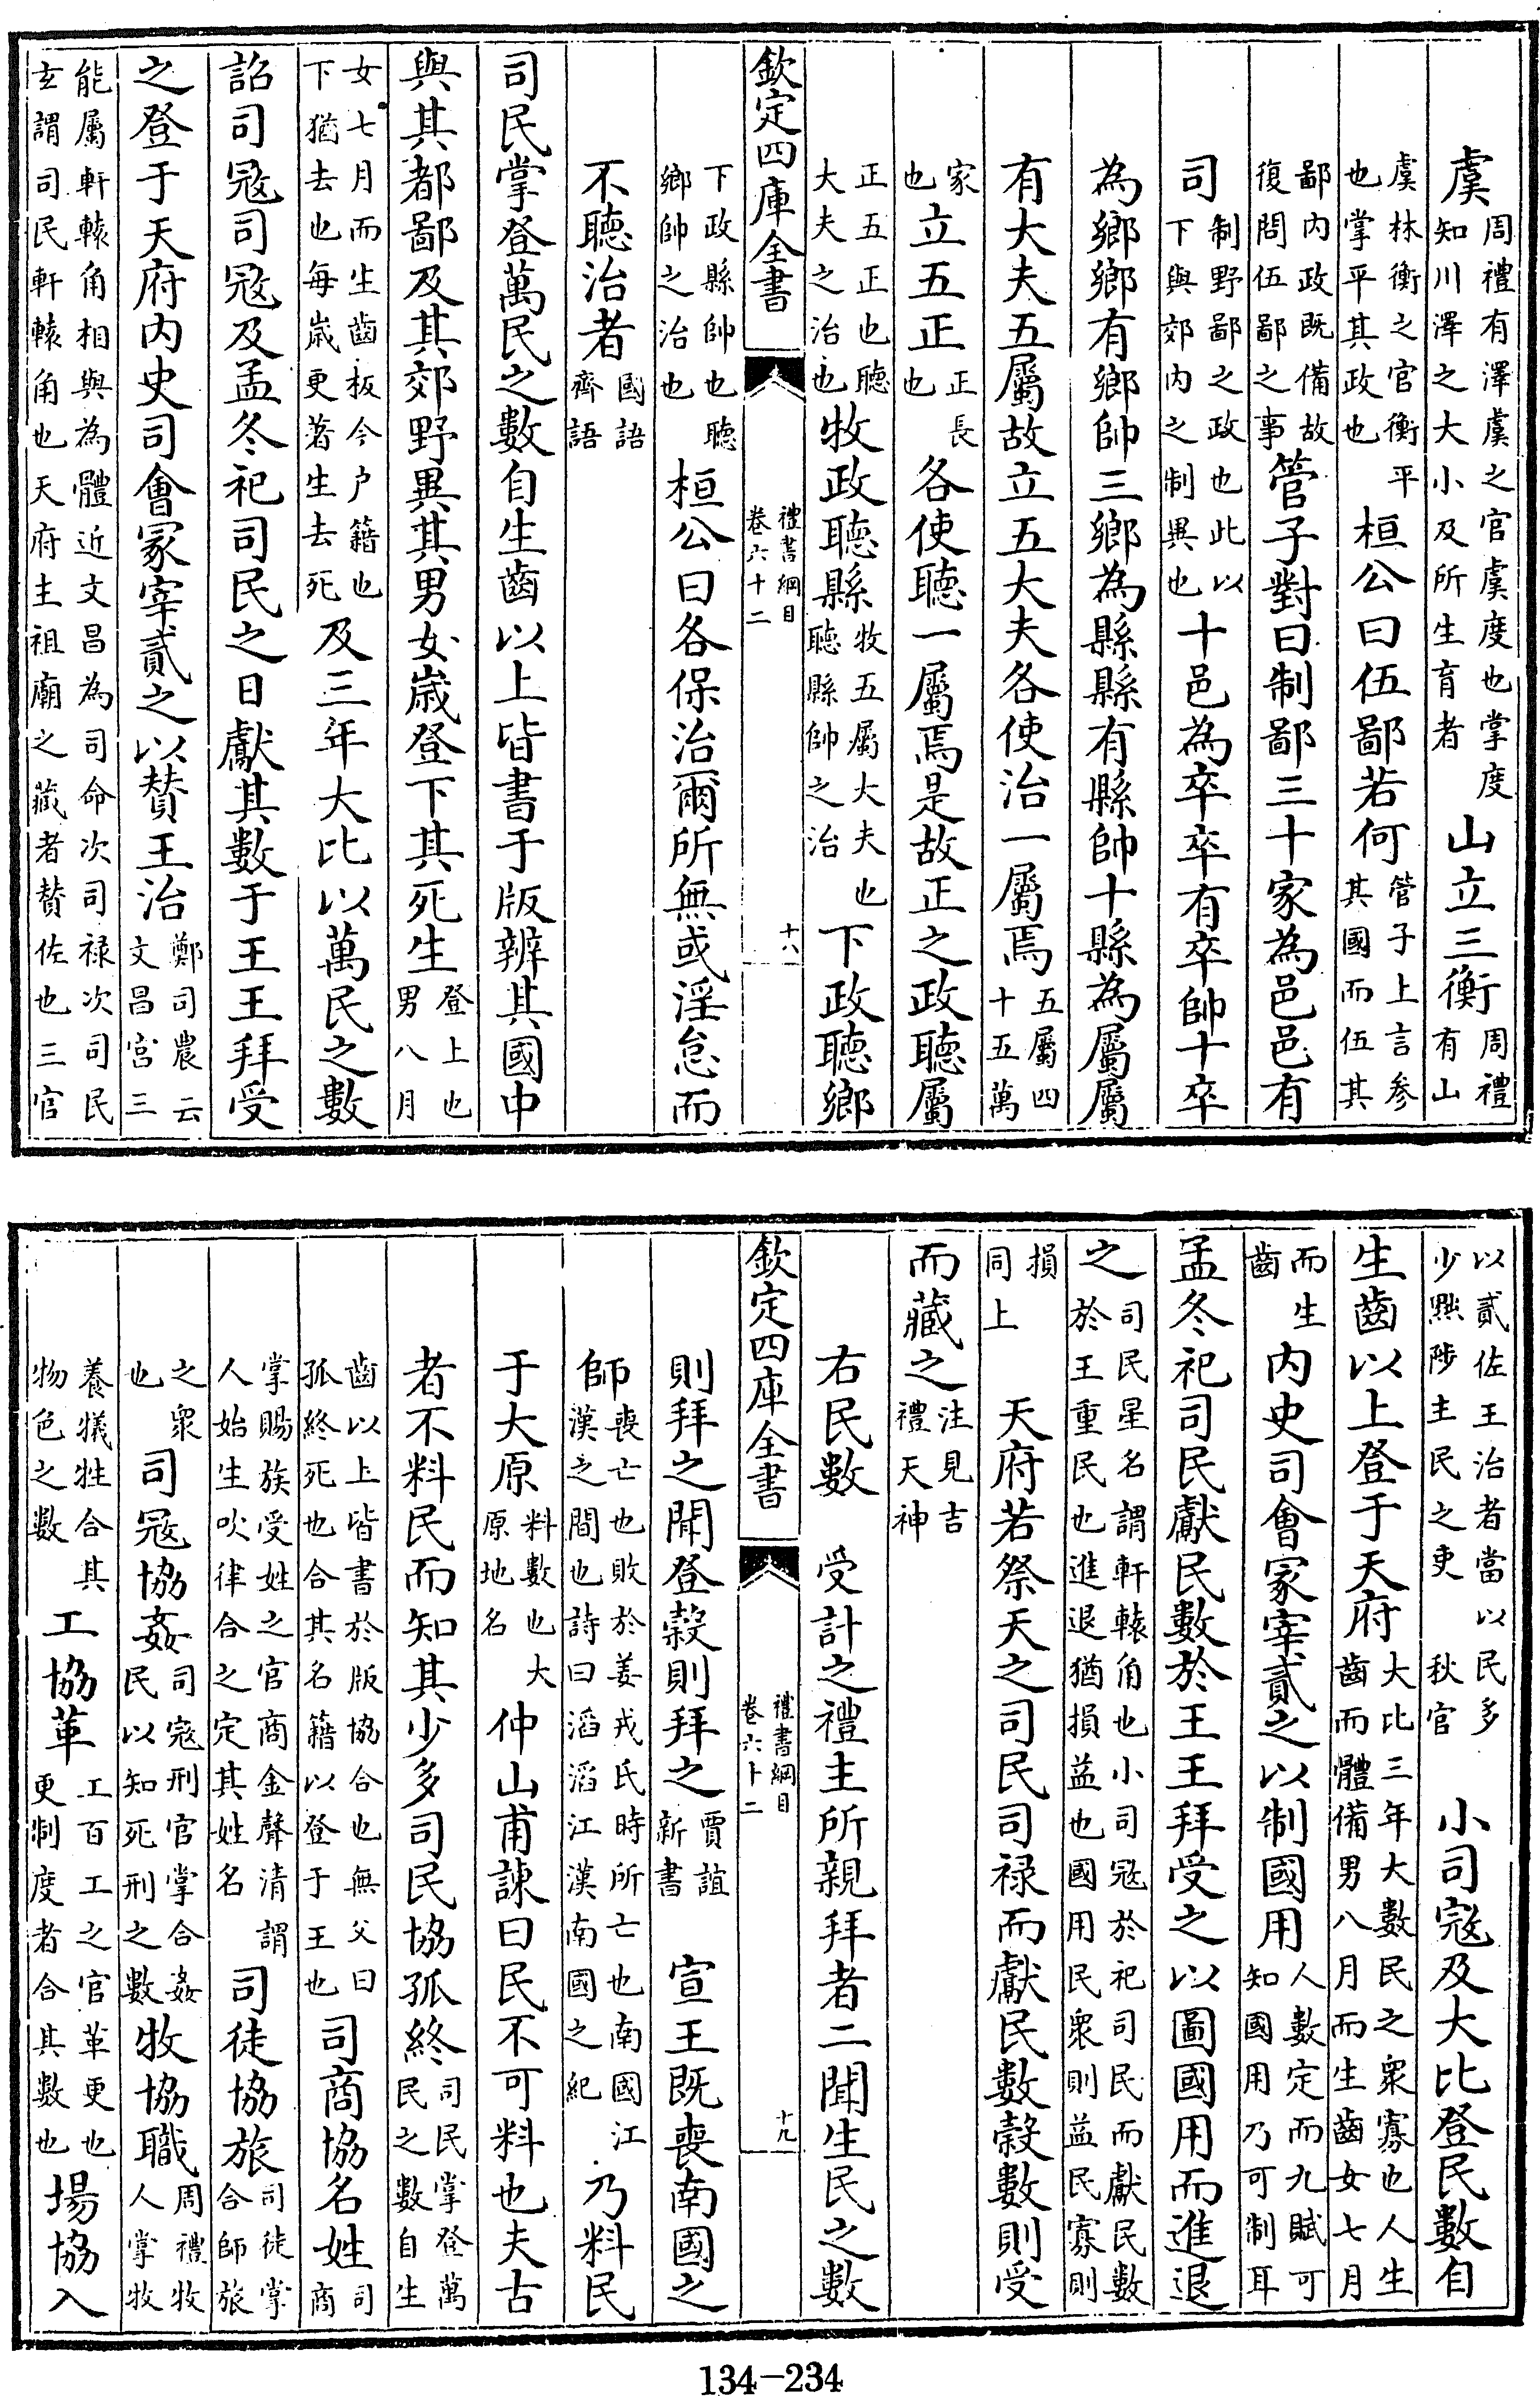 虞周禮有澤虞之官虞度也掌度知川澤之大小及所生育者山立三衡周禮有山
虞林衡之官衡平也掌平其政也桓公曰伍鄙若何管子上言參其國而伍其
鄙内政既備故復問伍鄙之事管子對曰制鄙三十家為邑邑有
司制野鄙之政也此以下與郊内之制異也十邑為卒卒有卒帥十卒
為鄉鄉有鄉帥三鄉為縣縣有縣帥十縣為屬屬
有大夫五屬故立五大夫各使治一屬焉五屬四十五萬
家也立五正正長也各使聽一屬焉是故正之政聽屬
正五正也聽大夫之治也牧政聽縣牧五屬大夫也聽縣帥之治下政聽鄉
欽定四庫全書 禮書綱目卷六十二 十八
下政縣帥也聽鄉帥之治也桓公曰各保治爾所無或淫怠而
不聽治者國語齊語
司民掌登萬民之數自生齒以上皆書于版辨其國中
與其都鄙及其郊野異其男女歲登下其死生登上也男八月
女七月而生齒板今户籍也下猶去也每歲更著生去死及三年大比以萬民之數
詔司寇司寇及孟冬祀司民之日獻其數于王王拜受
之登于天府内史司會冡宰貳之以贊王治鄭司農云文昌宫三
能屬軒轅角相與為體近文昌為司命次司禄次司民玄謂司民軒轅角也天府主祖廟之藏者贊佐也三官
以貳佐王治者當以民多少黜陟主民之吏 秋官 小司寇及大比登民數自
生齒以上登于天府大比三年大數民之衆寡也人生齒而體備男八月而生齒女七月
而生齒内史司會冡宰貳之以制國用人數定而九賦可知國用乃可制耳
孟冬祀司民獻民數於王王拜受之以圖國用而進退
之司民星名謂軒轅角也小司寇於祀司民而獻民數於王重民也進退猶損益也國用民衆則益民寡則
損同上 天府若祭天之司民司禄而獻民數穀數則受
而藏之注見吉禮天神
右民數 受計之禮主所親拜者二聞生民之數
欽定四庫全書 禮書綱目卷六十二 十九
則拜之聞登穀則拜之賈誼新書 宣王既喪南國之
師喪亡也敗於姜戎氏時所亡也南國江漢之間也詩曰滔滔江漢南國之紀乃料民
于大原料數也大原地名仲山甫諫曰民不可料也夫古
者不料民而知其少多司民協孤終司民掌登萬民之數自生
齒以上皆書於版協合也無父曰孤終死也合其名籍以登于王也司商協名姓司商
掌賜族受姓之官商金聲清謂人始生吹律合之定其姓名司徒協旅司徒掌合師旅
之衆也司寇協姦司寇刑官掌合姦民以知死刑之數牧協職周禮牧人掌牧
養犧牲合其物色之數工協革工百工之官革更也更制度者合其數也場協入
134-234